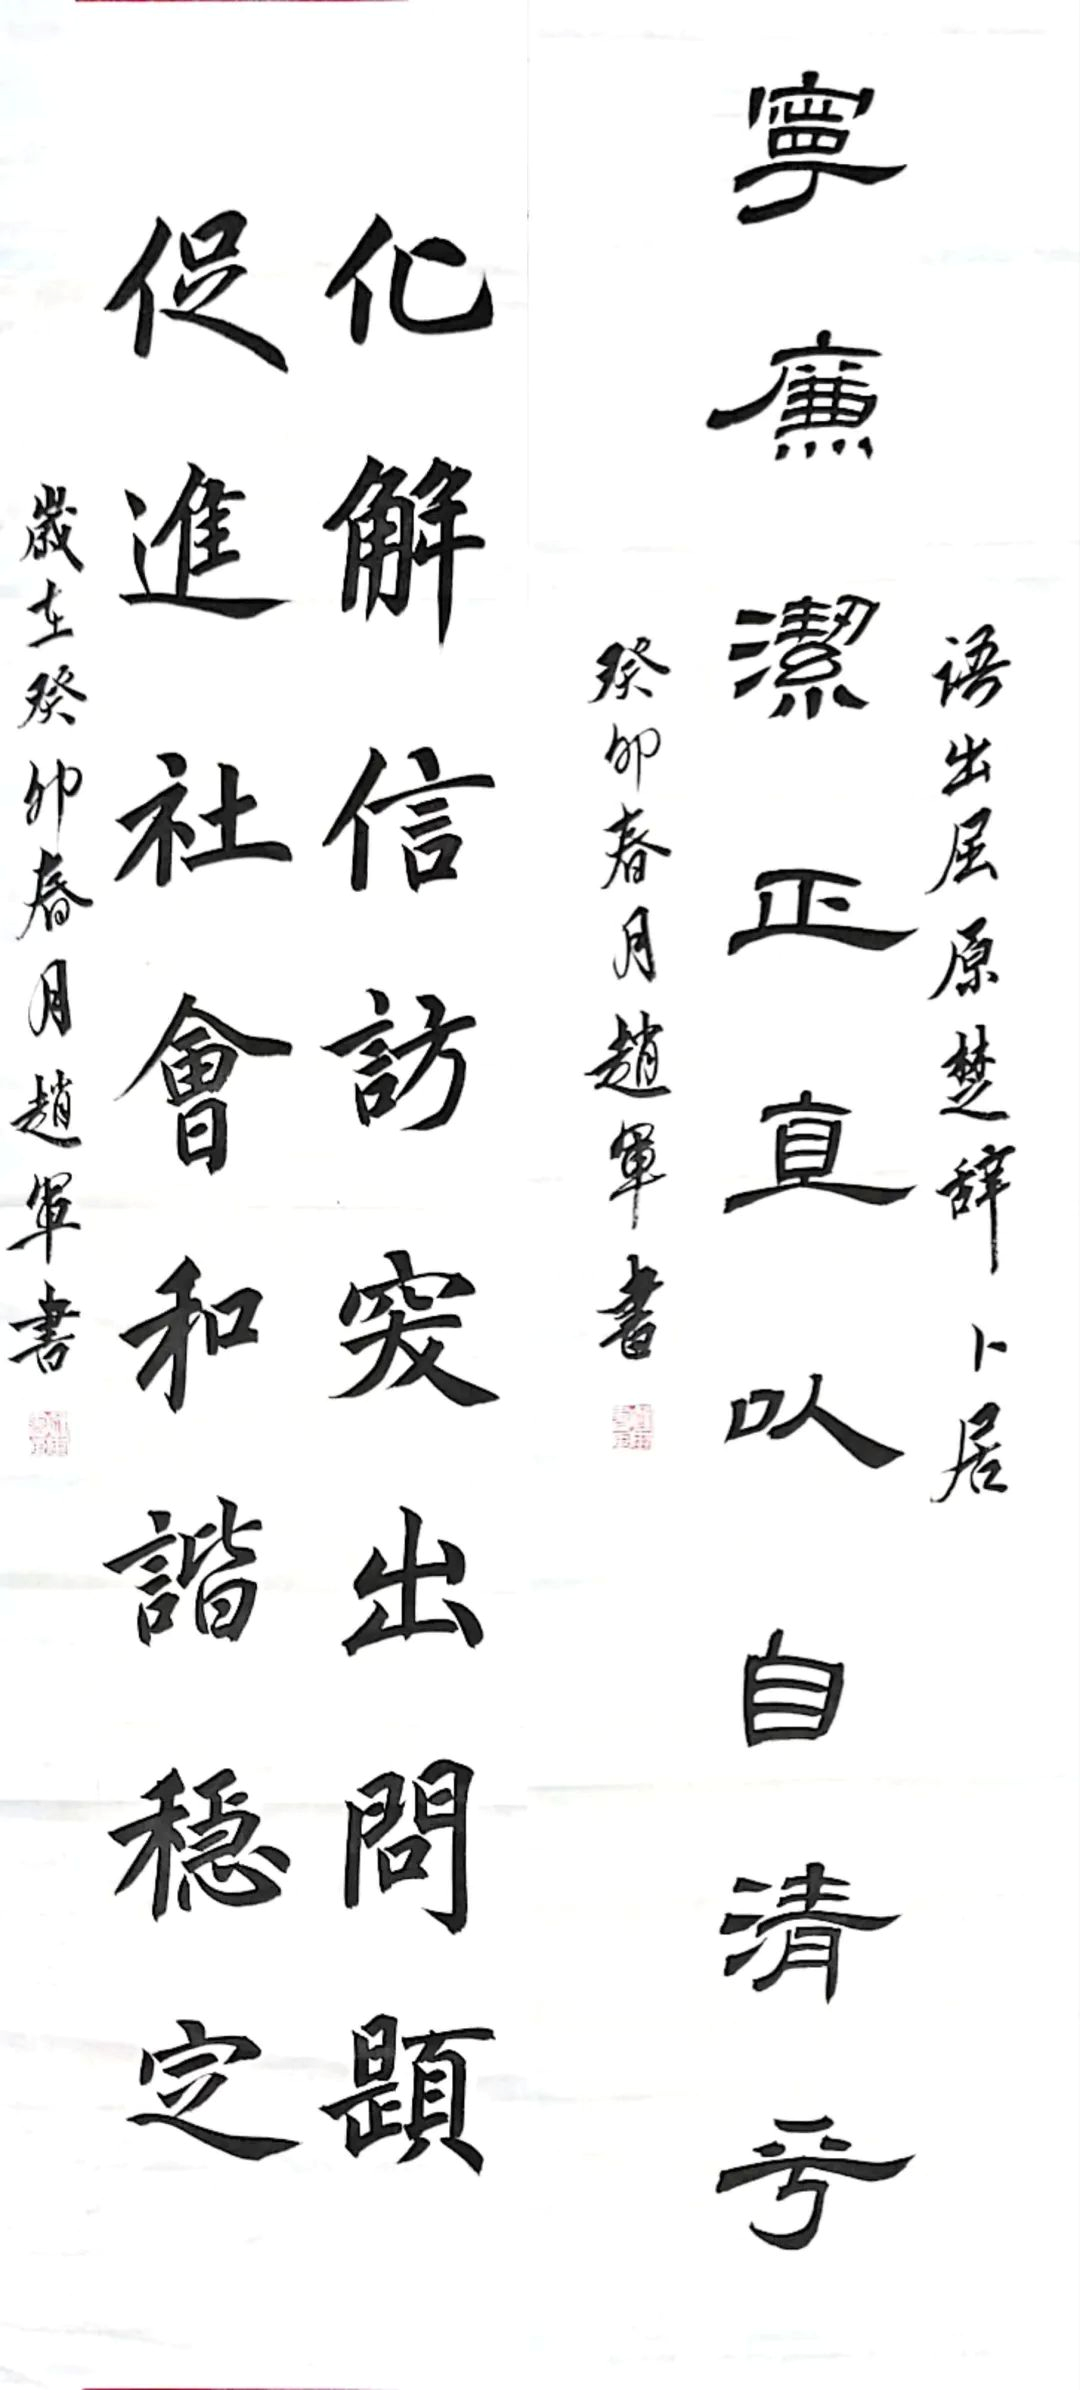 語出屈原楚辞卜居
寧廉潔正直以自清乎
癸卯春月趙軍書
化解信訪突出問題
促進社會和諧穩定
歲在癸卯春月趙軍書